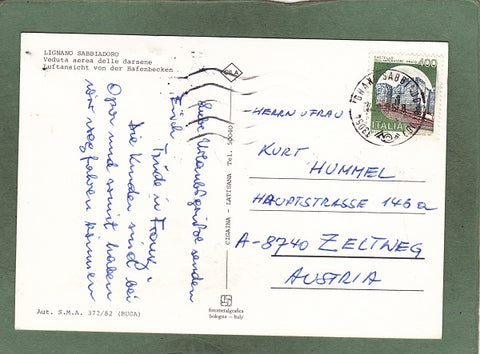 LIGNANO SABBIADORO
Veduta aerea delle darsene
Luftansicht von der Hafenbecken
liebe Urlaubsgrüße senden
Euch
Trude u Franz,
Die Kinder sind bei
Opa und somit haben
wir weg fahren können
CIGAINA - LATISANA Tel. 50040
fotometalgrafica
bologna - Italy
Aut. S.M.A. 372/82 (BUGA)
400
ITALIA
HERRN U FRAU
KURT
HUMMEL
HAUPTSTRASSE 146a
A-8740 ZELTWEG
AUSTRIA